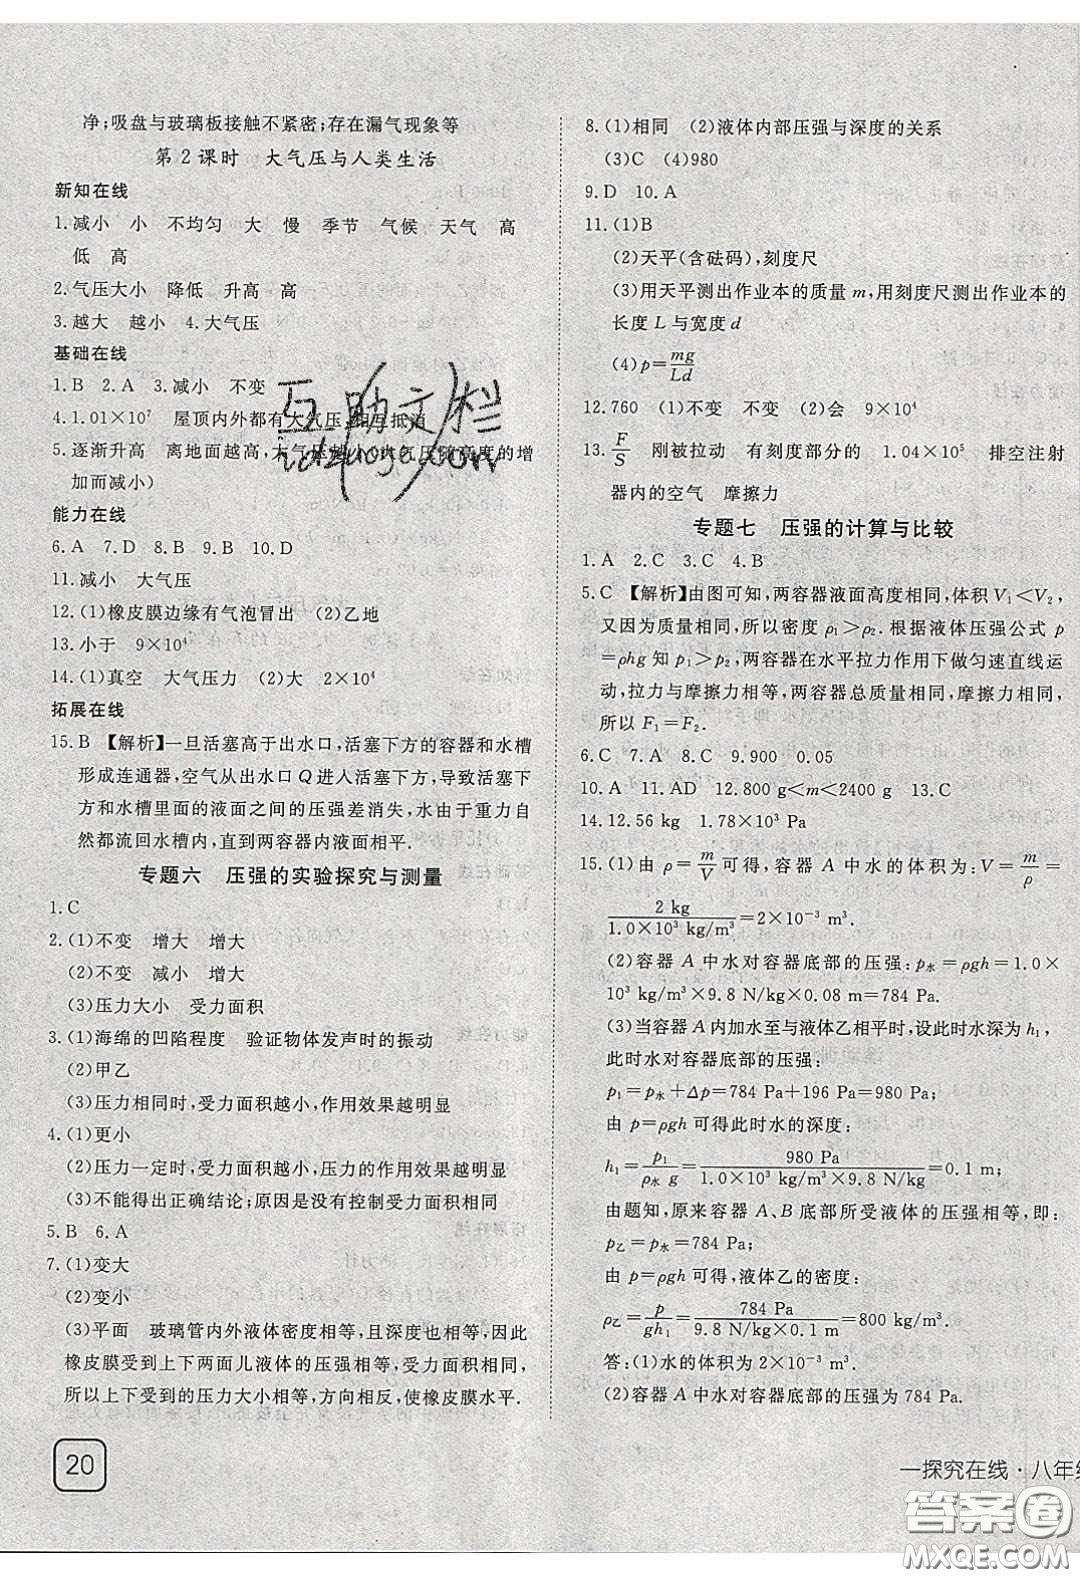 净;吸盘与玻璃板接触不紧密;存在漏气现象等
第2课时 大气压与人类生活
新知在线
1.减小 小 不均匀 大 慢 季节 气候 天气 高
低 高
2.气压大小 降低 升高 高
3.越大 越小 4.大气压
基础在线
1.B 2.A 3.减小 不变
4.1.01×10⁷ 屋顶内外都有大气压,相互抵消
5.逐渐升高 离地面越高,大气压越小(大气压随高度的增
加而减小)
能力在线
6.A 7.D 8.B 9.B 10.D
11.减小 大气压
12.(1)橡皮膜边缘有气泡冒出 (2)乙地
13.小于 9×10⁴
14.(1)真空 大气压力 (2)大 2×10⁴
拓展在线
15.B 【解析】一旦活塞高于出水口,活塞下方的容器和水槽
形成连通器,空气从出水口Q进入活塞下方,导致活塞下
方和水槽里面的液面之间的压强差消失,水由于重力自
然都流回水槽内,直到两容器内液面相平.
专题六 压强的实验探究与测量
1.C
2.(1)不变 增大 增大
(2)不变 减小 增大
(3)压力大小 受力面积
3.(1)海绵的凹陷程度 验证物体发声时的振动
(2)甲乙
(3)压力相同时,受力面积越小,作用效果越明显
4.(1)更小
(2)压力一定时,受力面积越小,压力的作用效果越明显
(3)不能得出正确结论;原因是没有控制受力面积相同
5.B 6.A
7.(1)变大
(2)变小
(3)平面 玻璃管内外液体密度相等,且深度也相等,因此
橡皮膜受到上下两面儿液体的压强相等,受力面积相同,
所以上下受到的压力大小相等,方向相反,使橡皮膜水平.
20
8.(1)相同 (2)液体内部压强与深度的关系
(3)C (4)980
9.D 10.A
11.(1)B
(2)天平(含砝码),刻度尺
(3)用天平测出作业本的质量 m,用刻度尺测出作业本的
长度 L 与宽度 d
(4)p=mg/Ld
12.760 (1)不变 不变 (2)会 9×10⁴
13.F/S 刚被拉动 有刻度部分的 1.04×10⁵ 排空注射
器内的空气 摩擦力
专题七 压强的计算与比较
1.A 2.C 3.C 4.B
5.C 【解析】由图可知,两容器液面高度相同,体积V₁<V₂,
又因为质量相同,所以密度ρ₁>ρ₂.根据液体压强公式 p
=ρhg 知 p₁>p₂,两容器在水平拉力作用下做匀速直线运
动,拉力与摩擦力相等,两容器总质量相同,摩擦力相同,
所以 F₁=F₂.
6.C 7.A 8.C 9.900 0.05
10.A 11.AD 12.800 g<m<2400 g 13.C
14.12.56 kg 1.78×10³ Pa
15.(1)由 ρ=m/V 可得,容器 A 中水的体积为:V=m/ρ=
2 kg/1.0×10³ kg/m³=2×10⁻³ m³.
(2)容器 A 中水对容器底部的压强:p水=ρgh=1.0×
10³ kg/m³×9.8 N/kg×0.08 m=784 Pa.
(3)当容器 A 内加水至与液体乙相平时,设此时水深为 h₁,
此时水对容器底部的压强:
p₁=p水+Δp=784 Pa+196 Pa=980 Pa,
由 p=ρgh 可得此时水的深度:
h₁=p₁/ρ水g=980 Pa/1.0×10³ kg/m³×9.8 N/kg=0.1 m;
由题知,原来容器 A、B 底部所受液体的压强相等,即:
p乙=p水=784 Pa;
由 p=ρgh 可得,液体乙的密度:
ρ乙=p/gh₁=784 Pa/9.8 N/kg×0.1 m=800 kg/m³
答:(1)水的体积为 2×10⁻³ m³.
(2)容器 A 中水对容器底部的压强为 784 Pa.
一探究在线·八年级
互助文栏
答案圈
MXQE.COM